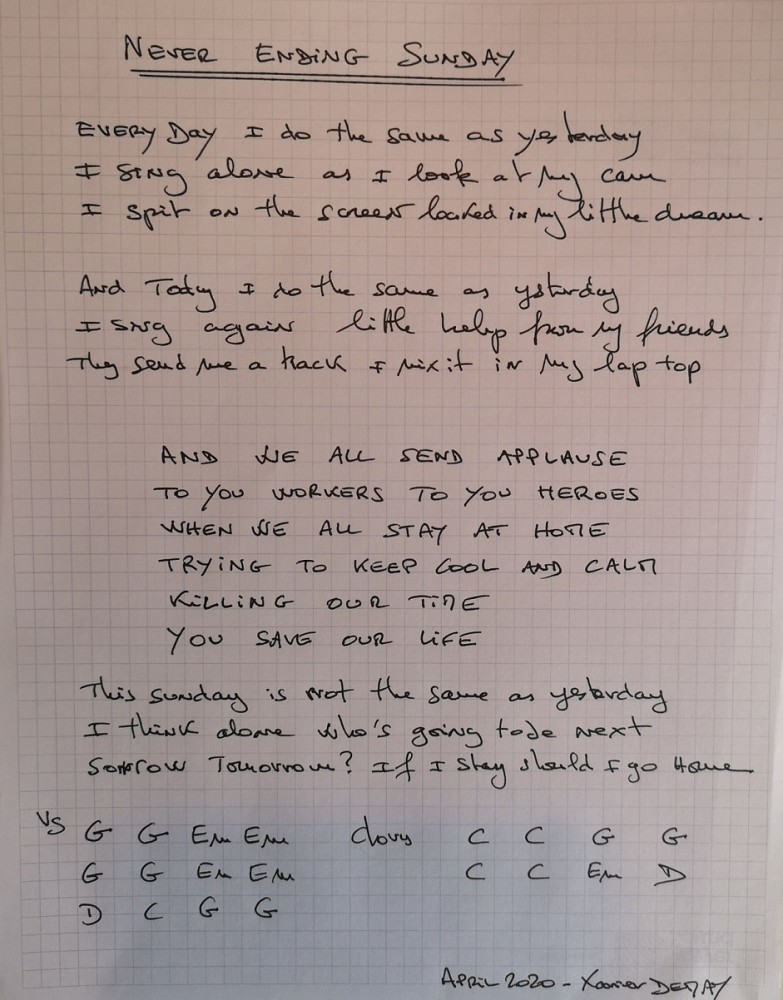 NEVER ENDING SUNDAY
EVERY DAY I do the same as yesterday
I sing alone as I look at my cam
I spit on the screen locked in my little dream.
And Today I do the same as yesterday
I sing again little help from my friends
They send me a track I mix it in my lap top
AND WE ALL SEND APPLAUSE
TO YOU WORKERS TO YOU HEROES
WHEN WE ALL STAY AT HOME
TRYING TO KEEP COOL AND CALM
KILLING OUR TIME
YOU SAVE OUR LIFE
This sunday is not the same as yesterday
I think alone who's going to be next
Sorrow Tomorrow? If I stay should I go Home
VS G G Em Em
G G Em Em
D C G G
C C G G
C C Em D
APRIL 2020 - DEMAY